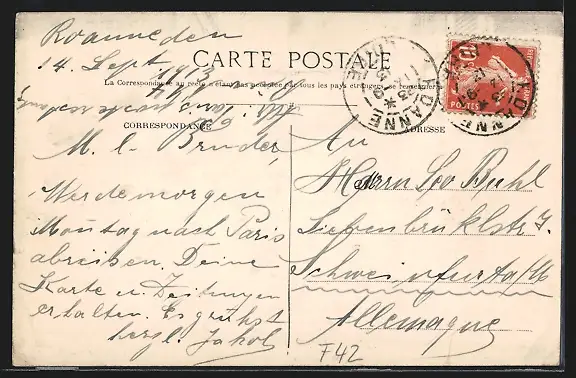 Roanne den
14. Sept. 1913
CARTE POSTALE
La Correspondance au recto n'étant pas acceptée par tous les pays étrangers, se renseigner
CORRESPONDANCE
ADRESSE
M. l. Bruder,
Werde morgen
Montag nach Paris
abreisen. Deine
Karte u. Zeitungen
erhalten. Es grüsst
herzl. Jakob
An
Herrn Leo Ruhl
Siebenbrüklstr 7.
Schweinfurt a/M
Allemagne
F42
10
POSTES
ROANNE